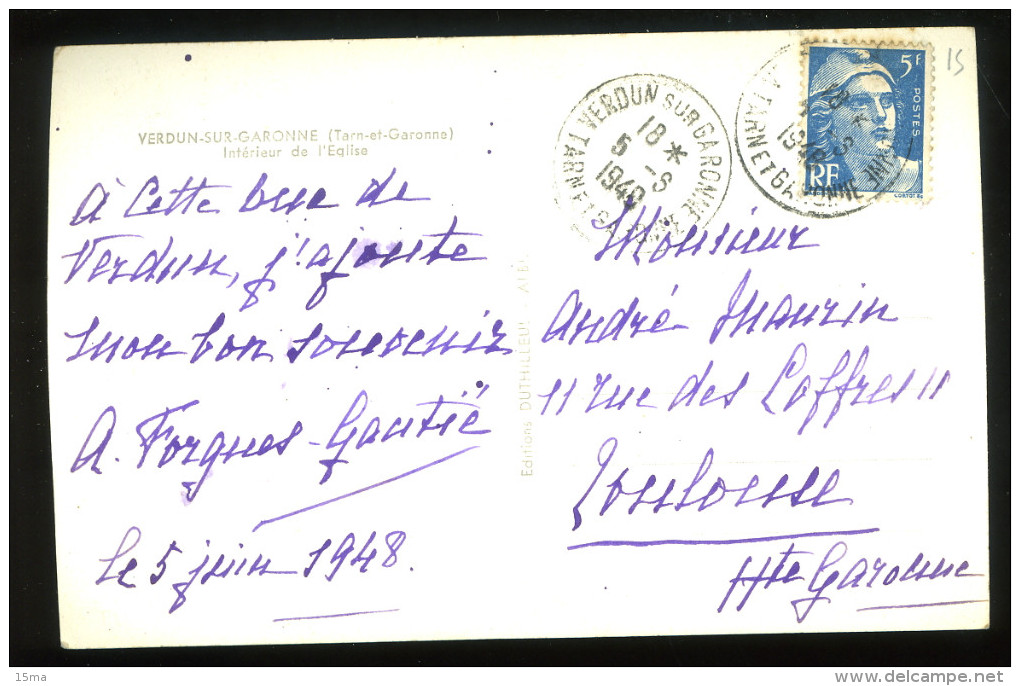 VERDUN-SUR-GARONNE (Tarn-et-Garonne)
Intérieur de l'Eglise
À Cette vue de
Verdun, j'ajoute
mon bon souvenir
A. Forgues-Gautié
Le 5 juin 1948.
Editions DUTHILLEUL ALBI
VERDUN SUR GARONNE
TARN ET GARONNE
18 *
5
1948
TARN ET GARONNE
18 *
1948
5f
POSTES
RF
15
Monsieur
André Maurin
11 rue des Coffres 11
Toulouse
Hte Garonne
15ma
www.delcampe.net